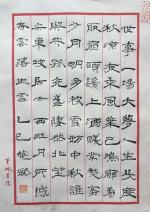 世事一場大夢人生幾度
秋涼夜來風葉已鳴廊看
取眉頭鬢上酒賤常愁客
少月明多被雲妨中秋誰
與共孤光把盞淒然北望
東坡居士西江月
乙巳